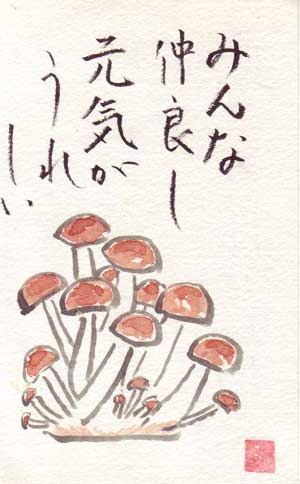 みんな
仲良し
元気が
うれ
しい